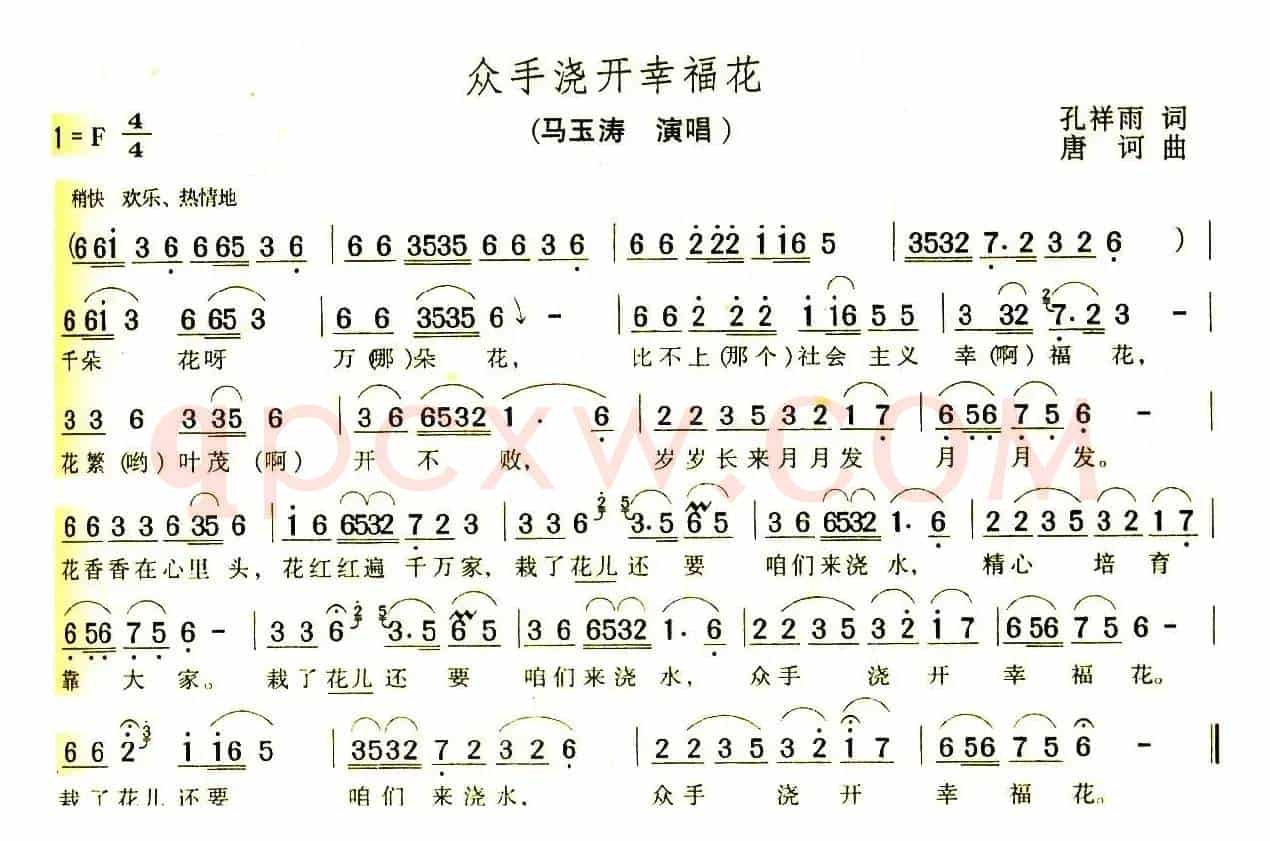 众手浇开幸福花
(马玉涛 演唱)
1=F 4/4
孔祥雨 词
唐 诃 曲
稍快 欢乐、热情地
(6 6 6 i 3 6 6 6 5 3 6 | 6 6 3535 6 6 3 6 | 6 6 2 2 2 i i 6 5 | 3532 7. 2 3 2 6 ) |
6 6 i 3 6 6 5 3 | 6 6 3535 6 - | 6 6 2 2 2 2 i i 6 5 5 | 3 3 2 2 7. 2 3 - |
千朵 花呀 万(那)朵 花, 比不上(那个)社会 主义 幸(啊)福 花,
3 3 6 3 3 5 6 | 3 6 6532 1 . 6 | 2 2 3 5 3 2 1 7 | 6 5 6 7 5 6 - |
花繁(哟)叶茂(啊) 开 不 败, 岁岁长来月月发 月 月 发。
6 6 3 3 6 3 5 6 | i 6 6532 7 2 3 | 3 3 6 2 5 3. 5 6 5 | 3 6 6532 1. 6 | 2 2 3 5 3 2 1 7 |
花香香在心里头, 花红红遍千万家, 栽了花儿还 要 咱们来浇水, 精心 培育
6 5 6 7 5 6 - | 3 3 6 2 5 3. 5 6 5 | 3 6 6532 1. 6 | 2 2 3 5 3 2 i 7 | 6 5 6 7 5 6 - |
靠 大 家。 栽了花儿还 要 咱们来浇水, 众手 浇 开 幸 福 花。
6 6 2 3 i i 6 5 | 3532 7 2 3 2 6 | 2 2 3 5 3 2 i 7 | 6 5 6 7 5 6 - ‖
栽了花儿还要 咱们 来浇水, 众手 浇 开 幸 福 花。
qpcxw.COM